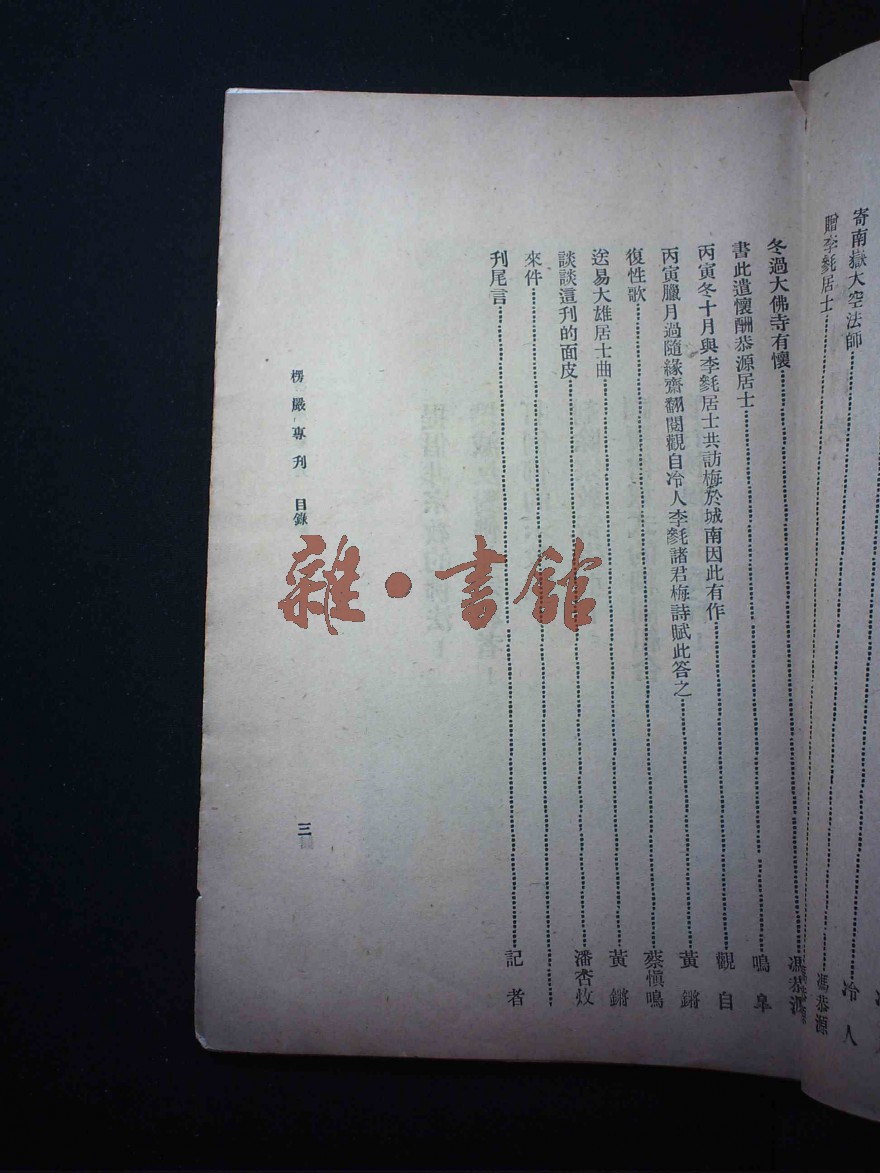 寄南嶽大空法師 冷人
贈李毿居士 馮恭源
冬過大佛寺有懷 馮恭源
書此遣懷酬恭源居士 鳴皐
丙寅冬十月與李毿居士共訪梅於城南因此有作 觀自
丙寅臘月過隨緣齋翻閱觀自冷人李毿諸君梅詩賦此答之 黃鏘
復性歌 蔡愼鳴
送易大雄居士曲 黃鏘
談談這刊的面皮 潘杏
來件
刊尾言 記者
楞嚴專刊 目錄
三
雜·書館